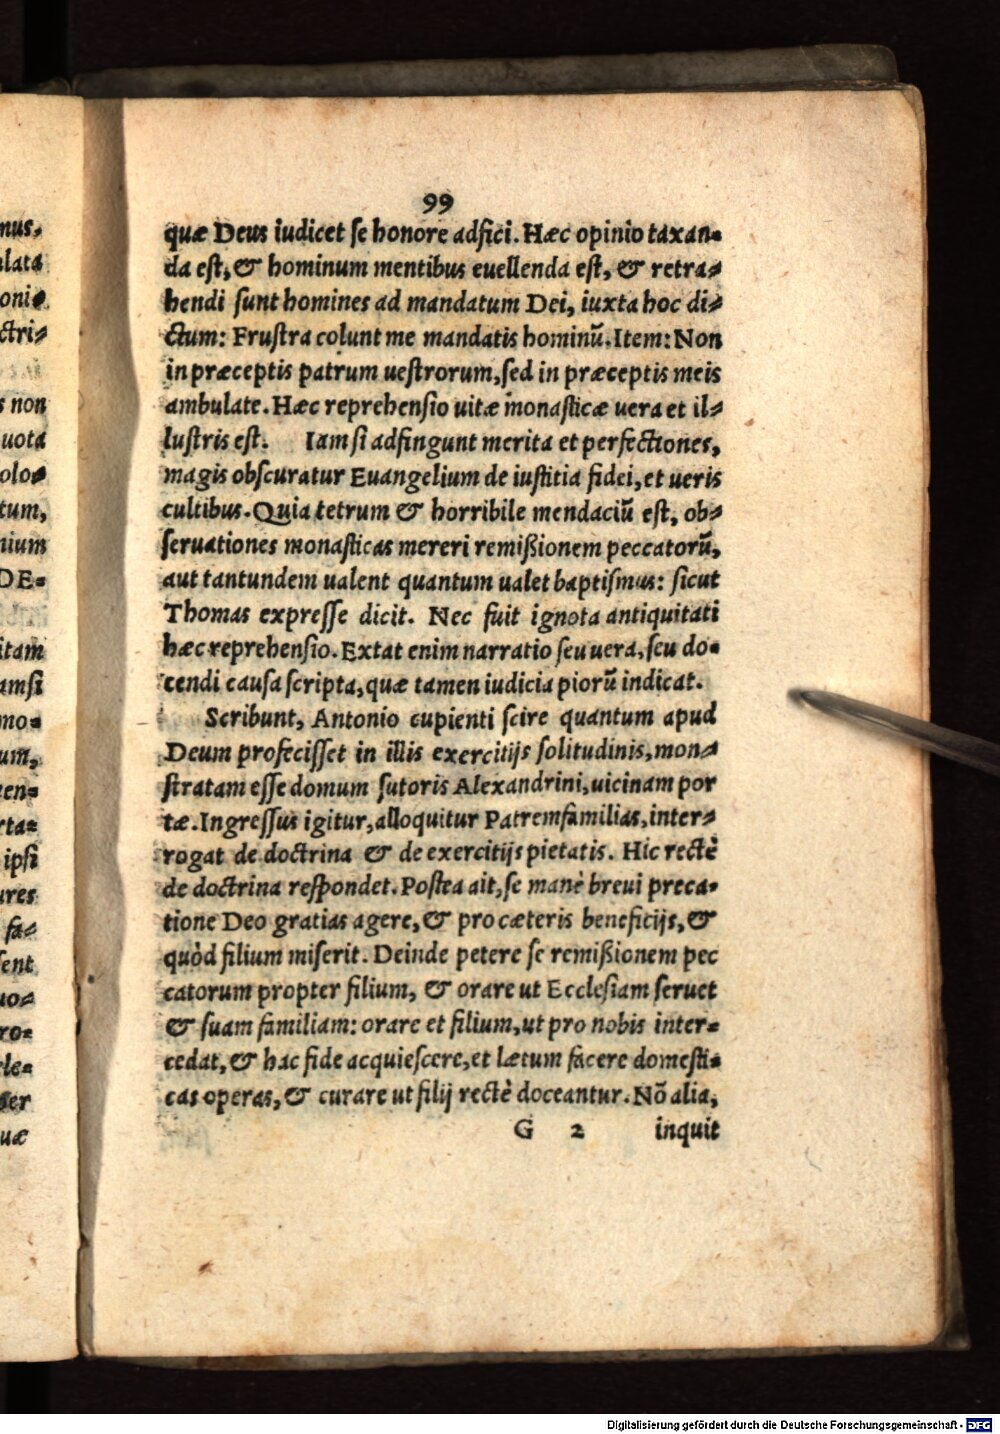 99
quæ Deus iudicet se honore adfici. Hæc opinio taxan-
da est, & hominum mentibus euellenda est, & retra-
hendi sunt homines ad mandatum Dei, iuxta hoc di-
ctum: Frustra colunt me mandatis hominū. Item: Non
in præceptis patrum uestrorum, sed in præceptis meis
ambulate. Hæc reprehensio uitæ monasticæ uera et il-
lustris est. Iam si adfingunt merita et perfectiones,
magis obscuratur Euangelium de iustitia fidei, et ueris
cultibus. Quia tetrum & horribile mendaciū est, ob-
seruationes monasticas mereri remißionem peccatorū,
aut tantundem ualent quantum ualet baptismus: sicut
Thomas expresse dicit. Nec fuit ignota antiquitati
hæc reprehensio. Extat enim narratio seu uera, seu do-
cendi causa scripta, quæ tamen iudicia piorū indicat.
Scribunt, Antonio cupienti scire quantum apud
Deum profecisset in illis exercitijs solitudinis, mon-
stratam esse domum sutoris Alexandrini, uicinam por
tæ. Ingressus igitur, alloquitur Patremfamilias, inter-
rogat de doctrina & de exercitijs pietatis. Hic rectè
de doctrina respondet. Postea ait, se manè breui preca-
tione Deo gratias agere, & pro cæteris beneficijs, &
quòd filium miserit. Deinde petere se remißionem pec
catorum propter filium, & orare ut Ecclesiam seruet
& suam familiam: orare et filium, ut pro nobis inter-
cedat, & hac fide acquiescere, et lætum facere domesti-
cas operas, & curare ut filij rectè doceantur. Nō alia,
G 2 inquit
nus,
lata
oni-
ctri-
s non
uota
olo-
tum,
nium
DE-
itam
amsi
mo-
um,
en-
rta-
ipsi
ures
fa-
sent
uo-
ro-
le-
uæ
Digitalisierung gefördert durch die Deutsche Forschungsgemeinschaft - DFG